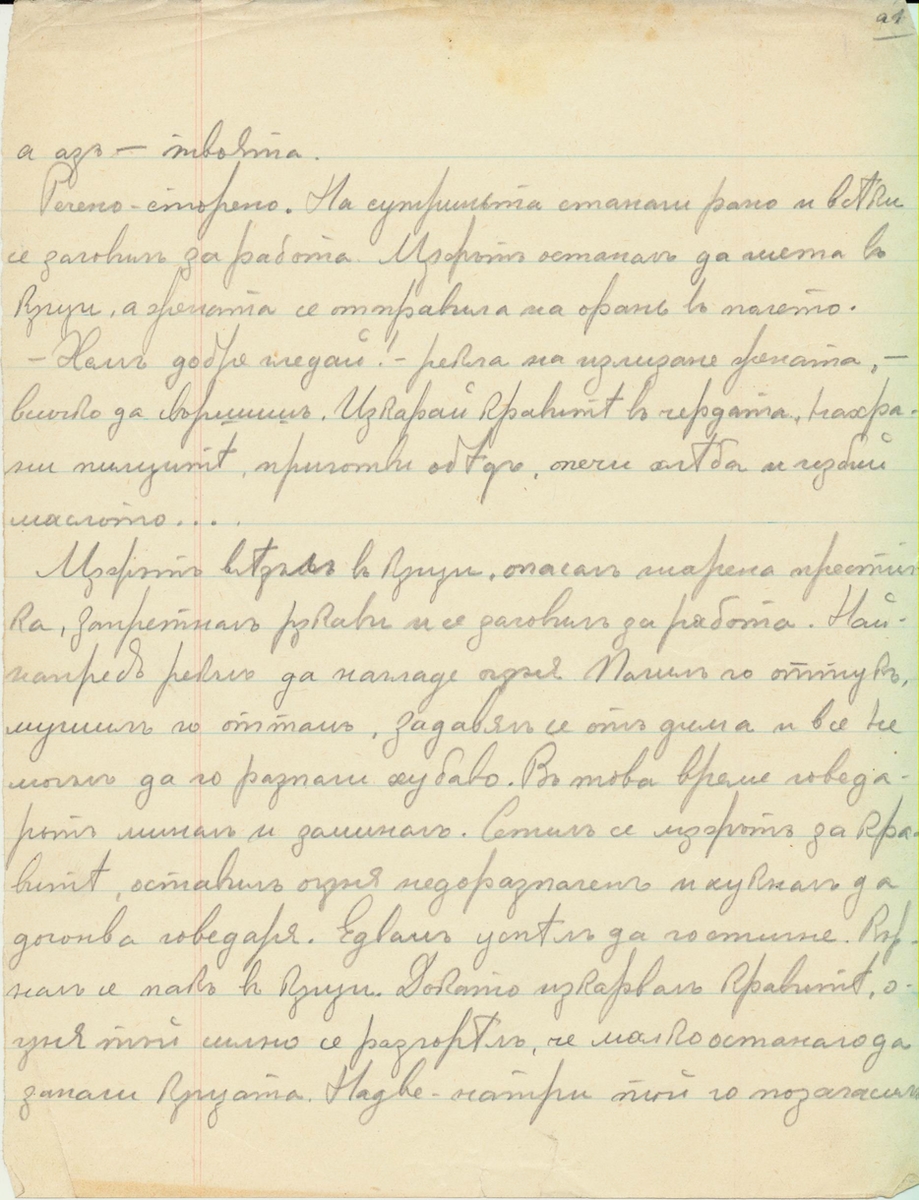 21
а азъ — твоята.
Речено-сторено. На сутриньта станали рано и всѣки
се заловилъ за работа. Мѫжътъ останалъ да шета въ
кѫщи, а жената се отправила на орань въ полето.
— Хемъ добре гледай! — рекла на излизане жената, —
всичко да свършишъ. Изкарай кравитѣ въ чердата, нахра-
ни пилцитѣ, приготви обѣдъ, опечи хлѣба и избий
маслото....
Мѫжътъ влѣзълъ въ кѫщи, опасалъ шарена престил-
ка, запретналъ рѫкави и се заловилъ за работа. Най-
напредъ рекълъ да накладе огъня. Палилъ го оттукъ,
мушилъ го оттамъ, задавялъ се отъ дима и все не
могълъ да го разпали хубаво. Въ това време говеда-
рътъ миналъ и заминалъ. Сетилъ се мѫжътъ за кра-
витѣ, оставилъ огъня недоразпаленъ и хукналъ да
догонва говедаря. Едвамъ успѣлъ да го стигне. Вър-
налъ се пакъ въ кѫщи. Докато изкарвалъ кравитѣ, о-
гъня тъй силно се разгорѣлъ, че малко останало да
запали кѫщата. Надве-натри той го позагасилъ